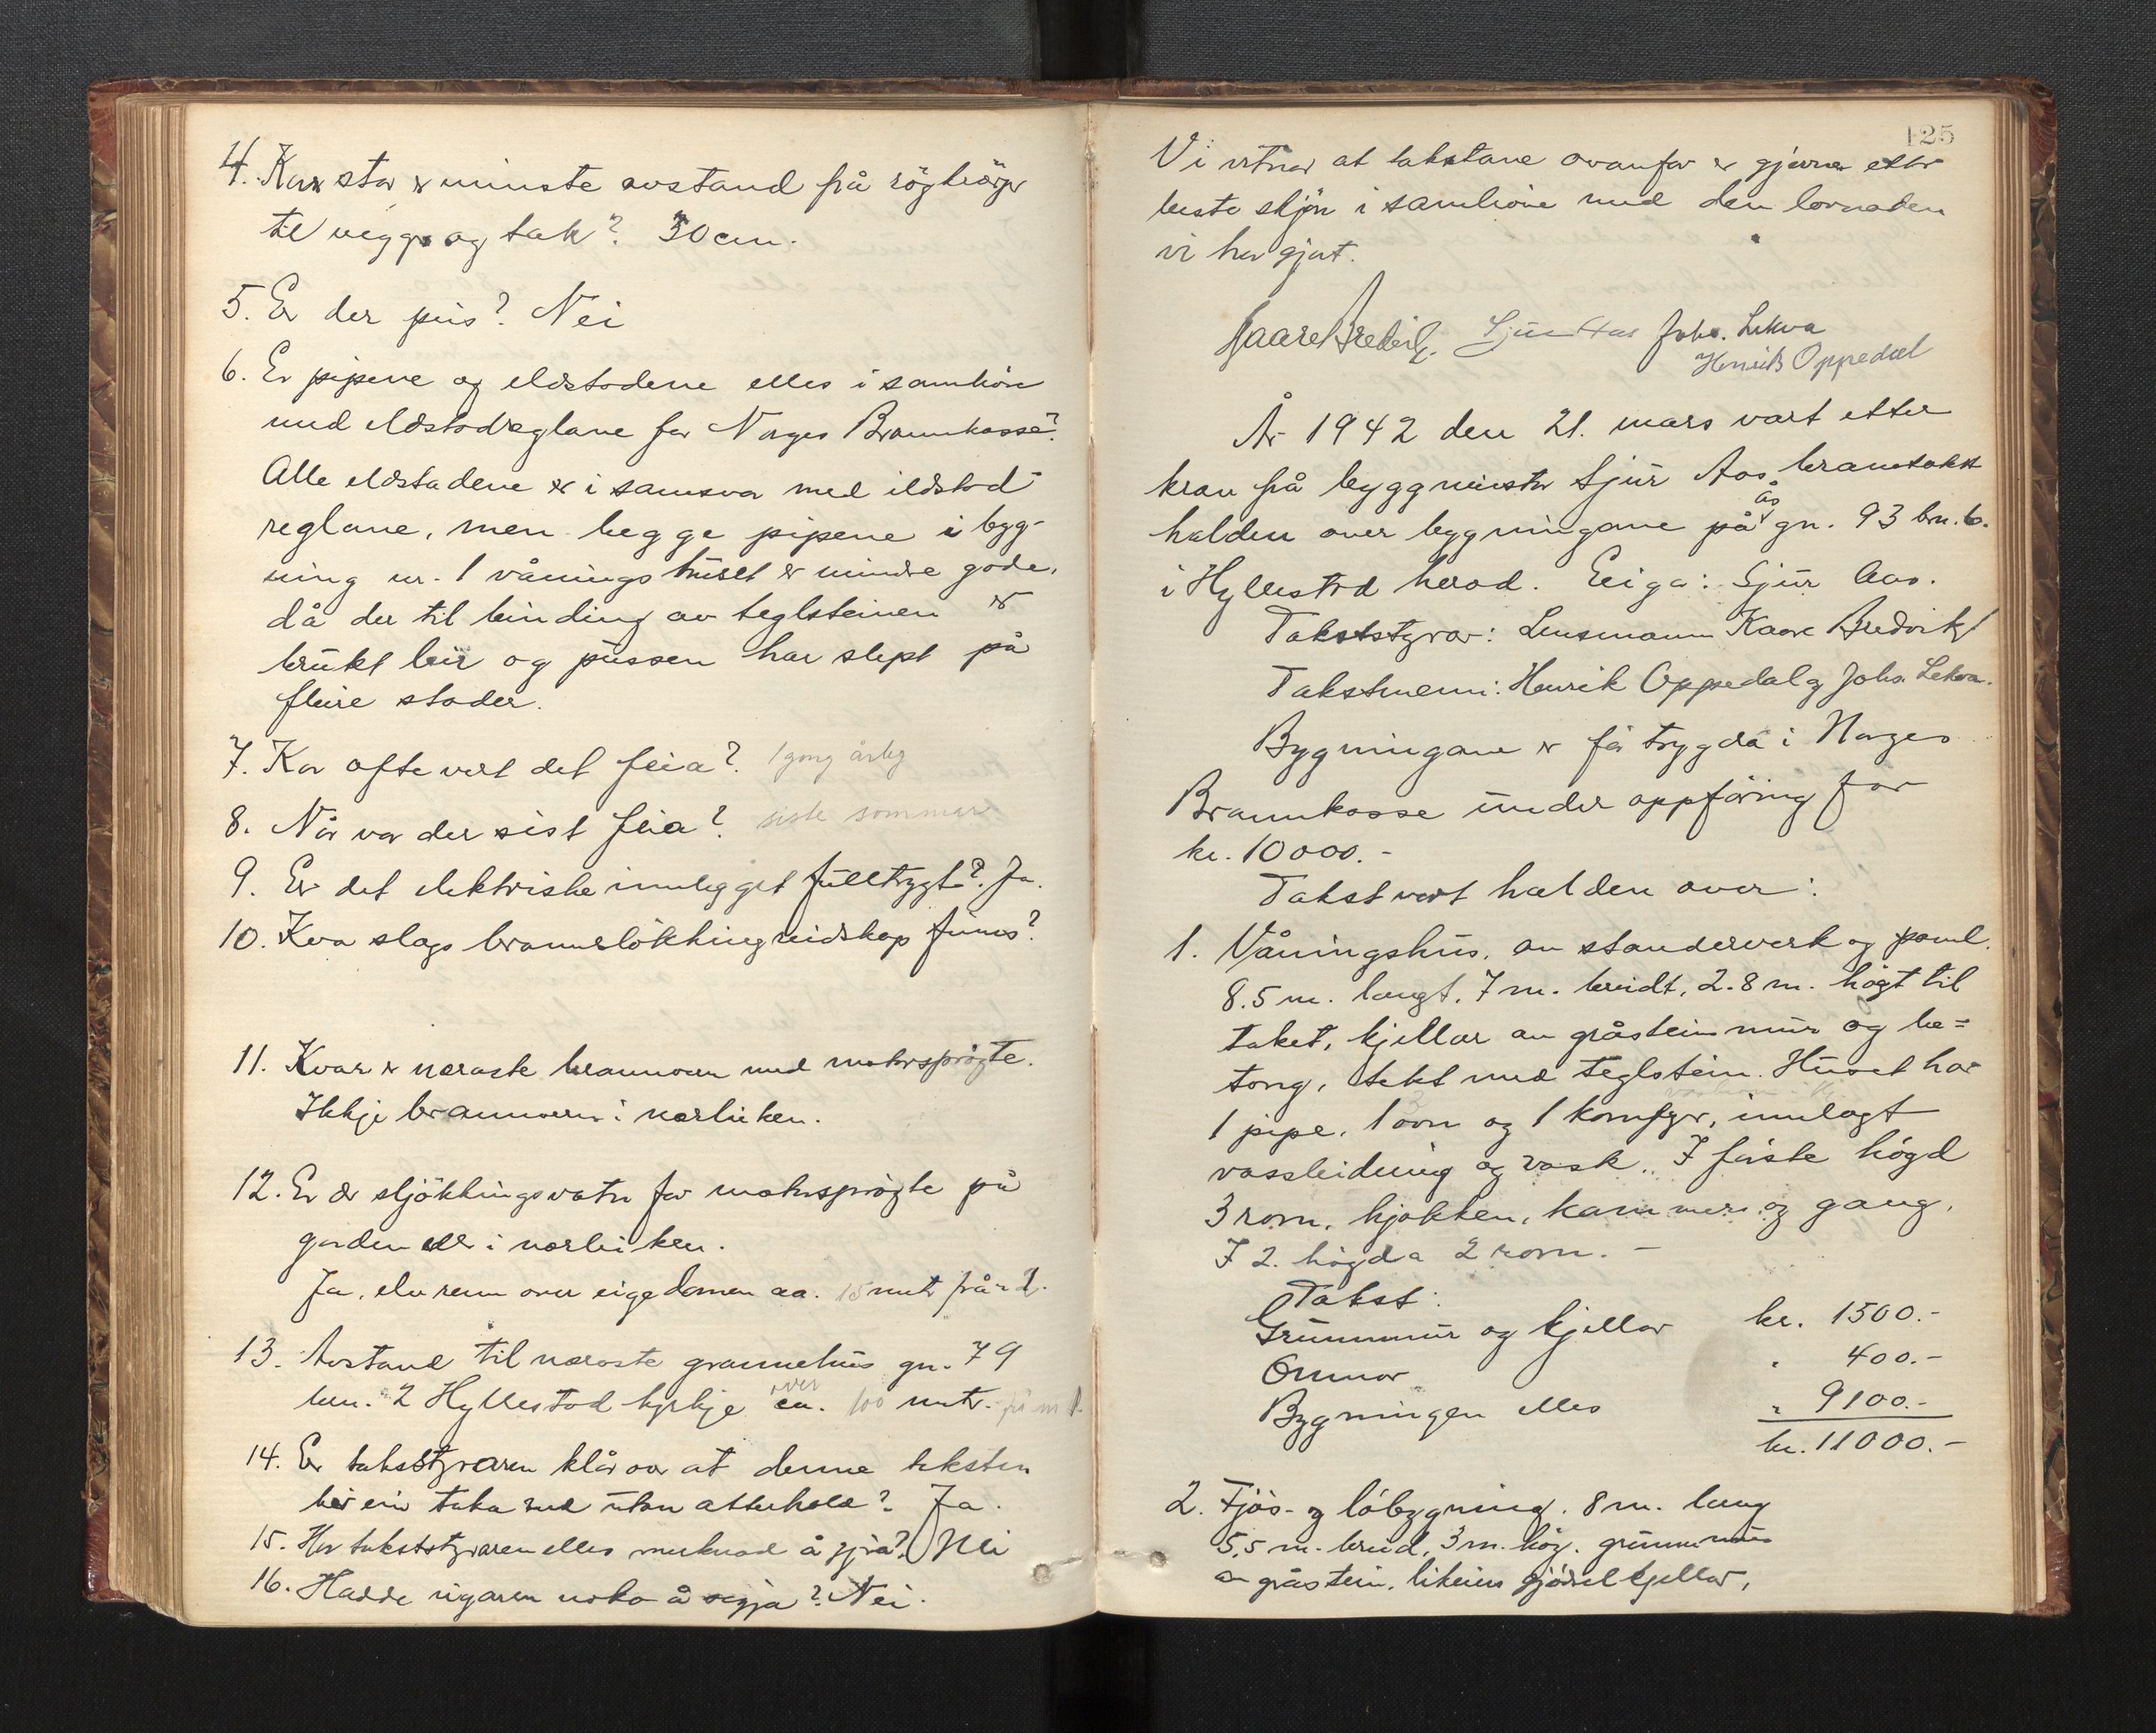 4. Kor stor er minste avstand frå röghörger
til vegger og tak? 30 cm.
5. Er der peis? Nei
6. Er pipene og eldstadene elles i samhöve
med eldstadreglane for Norges Brannkasse?
Alle eldstadene er i samsvar med ildstad
reglane, men begge pipene i byg-
ning nr. 1 våningshuset er mindre gode,
då der til binding av teglsteinen er
brukt leir og pussen har slept på
fleire stader.
7. Kor ofte vert det feia? 1 gong årleg
8. Når var der sist feia? siste sommar
9. Er det elektriske innlegget fulltrygt? Ja.
10. Kva slags brannslökkingreidskap finns?
11. Kvar er næraste brannvern med motorspröyte.
Ikkje brannvern i nærleiken.
12. Er der sljökkingsvatn for motorspröyte på
garden eller i nærleiken.
Ja, elv renn over eigedomen ca. 15 mtr frå nr 2.
13. Avstand til næraste grannehus gn. 79
brn. 2 Hyllestad kyrkje over ca. 100 mtr. frå nr 1.
14. Er takststyraren klår over at denne taksten
bör ein taka imd utan atterhald? Ja.
15. Har takststyraren elles merknad å gjera? Nei
16. Hadde eigaren noko å segja? Nei.
125
Vi vitnar at takstane ovanfor er gjevne etter
beste skjön i samhöve med den lovnaden
vi har gjort.
Kaare Bredvik. Sjur Aas Johs. Lekva
Henrik Oppedal
År 1942 den 21. mars vart etter
krav frå byggmeister Sjur Aas branntakst
halden over bygningane på Ås gn. 93 brn. 6.
i Hyllestad herad. Eiga: Sjur Aas.
Takststyrar: Lensmann Kaare Bredvik
Takstmenn: Henrik Oppedal og Johs. Lekva.
Bygningane er fö trygda i Norges
Brannkasse under oppföring for
kr. 10 000.-
Takst vart halden over:
1. Våningshus, av standerverk og panel.
8.5 m. langt, 7 m. breidt, 2.8 m. högt til
taket, kjellar av gråsteinsmur og be=
tong, tekt med teglstein. Huset har
1 pipe, 1 ovn og 1 komfyr, innlagt
vassleidning og vask. I fyrste högd
3 rom, kjökken, kammers og gang.
I 2. högda 2 rom. -
Takst:
Grunnmur og kjellar kr. 1500.-
Omnar " 400.-
Bygningen elles " 9100.-
kr. 11000.-
2. Fjös- og löbygning. 8 m. lang
5,5 m. breid, 3 m. hög. grunnmur
av gråstein, likeins gjödselkjellar,